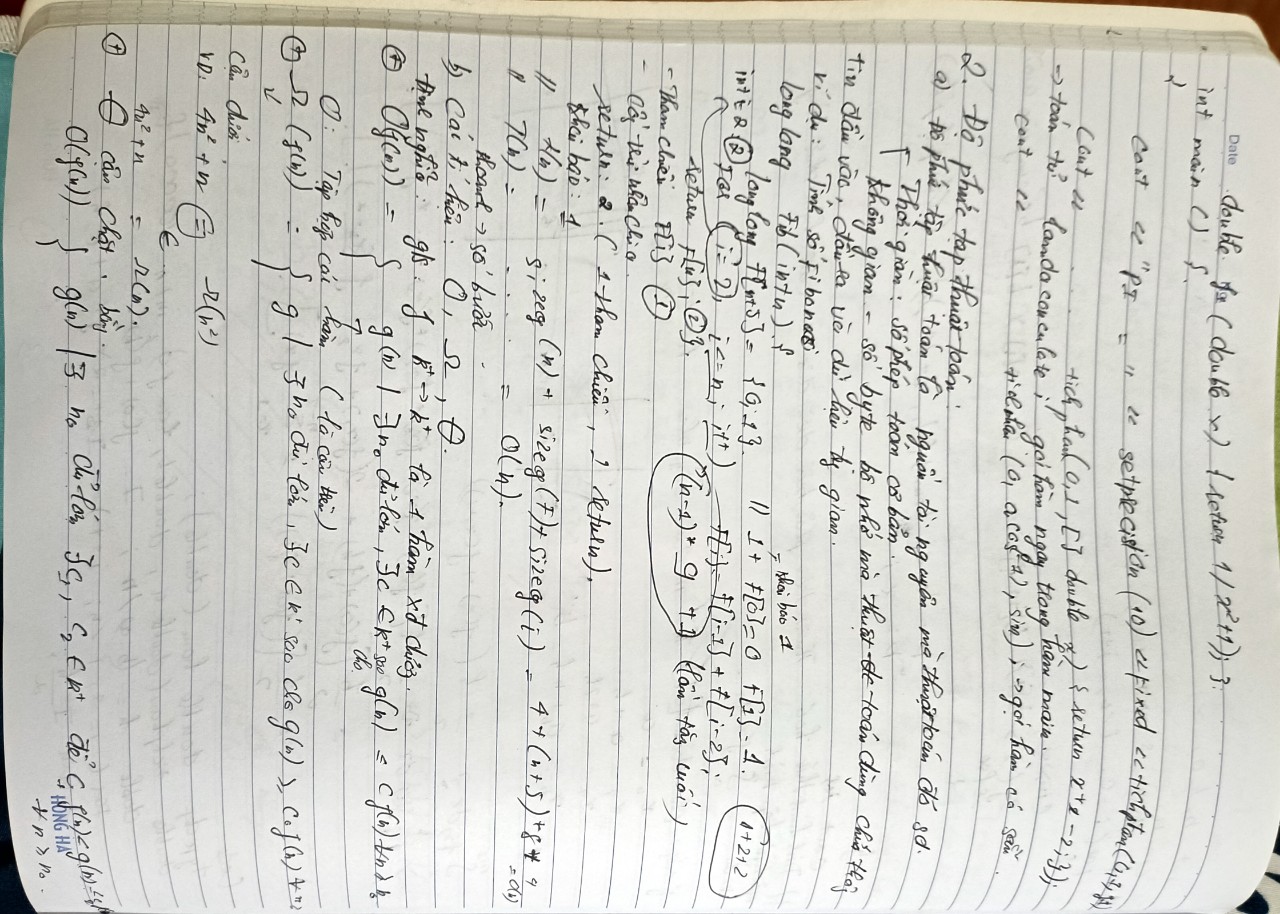 Date double fx (double x) { return 1/x²+1); }.
int main () {
cout << "PI = " << setprecision (10) << fixed << tichphan(0,1,
cout << ........ tich phan(0,1, [] double x) { return x+x-2; });
→ toán tử landa conculate ; gọi hàm ngay trong hàm main.
cout << tichphan (0, acos(-1), sin) ; → gọi hàm có sẵn
2. Độ phức tạp thuật toán:
a) Độ phức tạp thuật toán là nguồn tài nguyên mà thuật toán đó sd.
Thời gian: số phép toán cơ bản.
Không gian - số byte bộ nhớ mà thuật toán dùng chứa thông
tin đầu vào, đầu ra và dữ liệu tg gian.
ví dụ: Tính số Fibonacci
long long Fib(int n) {
= khai báo 1
long long F[n+5] = {0,1}. // 1+ F[0]=0 F[1]=1. 1+2+2
int i = 2 ② For (i=2), i<=n; i++) F[i] = F[i-1] + F[i-2];
return F[n]; ② }. (n-1)* 9 +1 (lần tăng cuối)
- Tham chiếu F[i] ①
- Cộng trừ nhân chia
return: 2. ( 1 tham chiếu, 1 return).
khai báo: 1
// t(n) = sizeg (n) + sizeg(F) + sizeg(i) = 4 + (n+5)*8 + 4 = O(n)
// T(n) = ..... = O(n).
thoanh → số bước
b) Các kí hiệu: O, Ω, Θ.
Định nghĩa: g/s: f R⁺ → R⁺ là 1 hàm xđ dương.
⊕ O(f(n)) = { g(n) | ∃ n₀ đủ lớn, ∃c ∈ R⁺ sao cho g(n) ≤ c f(n) ∀n ≥ n₀
O: Tập hợp các hàm (là cận trên)
⊕ Ω (f(n)) = { g | ∃ n₀ đủ lớn, ∃c ∈ R⁺ sao cho g(n) ≥ c₀f(n) ∀n≥
Cận dưới
VD: 4n² + n = Ω(n²)
∈
4n² + n = Ω(n).
⊕ Θ cận chặt, bằng.
Θ(f(n)) { g(n) | ∃ n₀ đủ lớn ∃c₁, c₂ ∈ R⁺ để c₁ f(n) ≤ g(n) ≤ c₂
HONG HA
∀ n ≥ n₀.